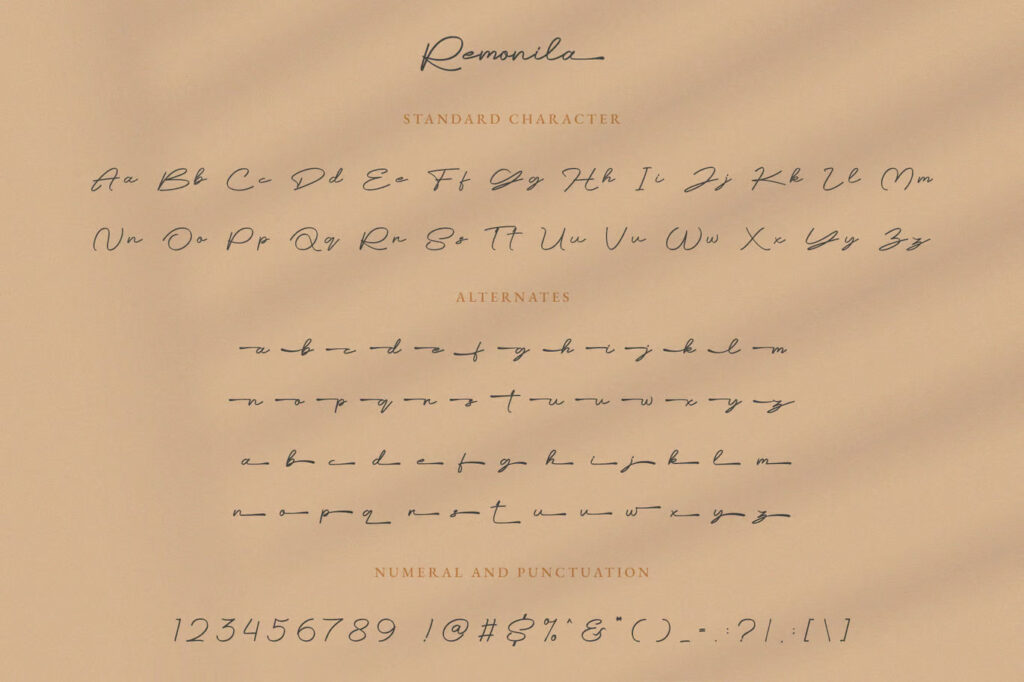 Remonila
STANDARD CHARACTER
Aa Bb Cc Dd Ee Ff Gg Hh Ii Jj Kk Ll Mm
Nn Oo Pp Qq Rr Ss Tt Uu Vv Ww Xx Yy Zz
ALTERNATES
a b c d e f g h i j k l m
n o p q r s t u v w x y z
a b c d e f g h i j k l m
n o p q r s t u v w x y z
NUMERAL AND PUNCTUATION
123456789 !@#$%^&"()_=.:?/.:[\]